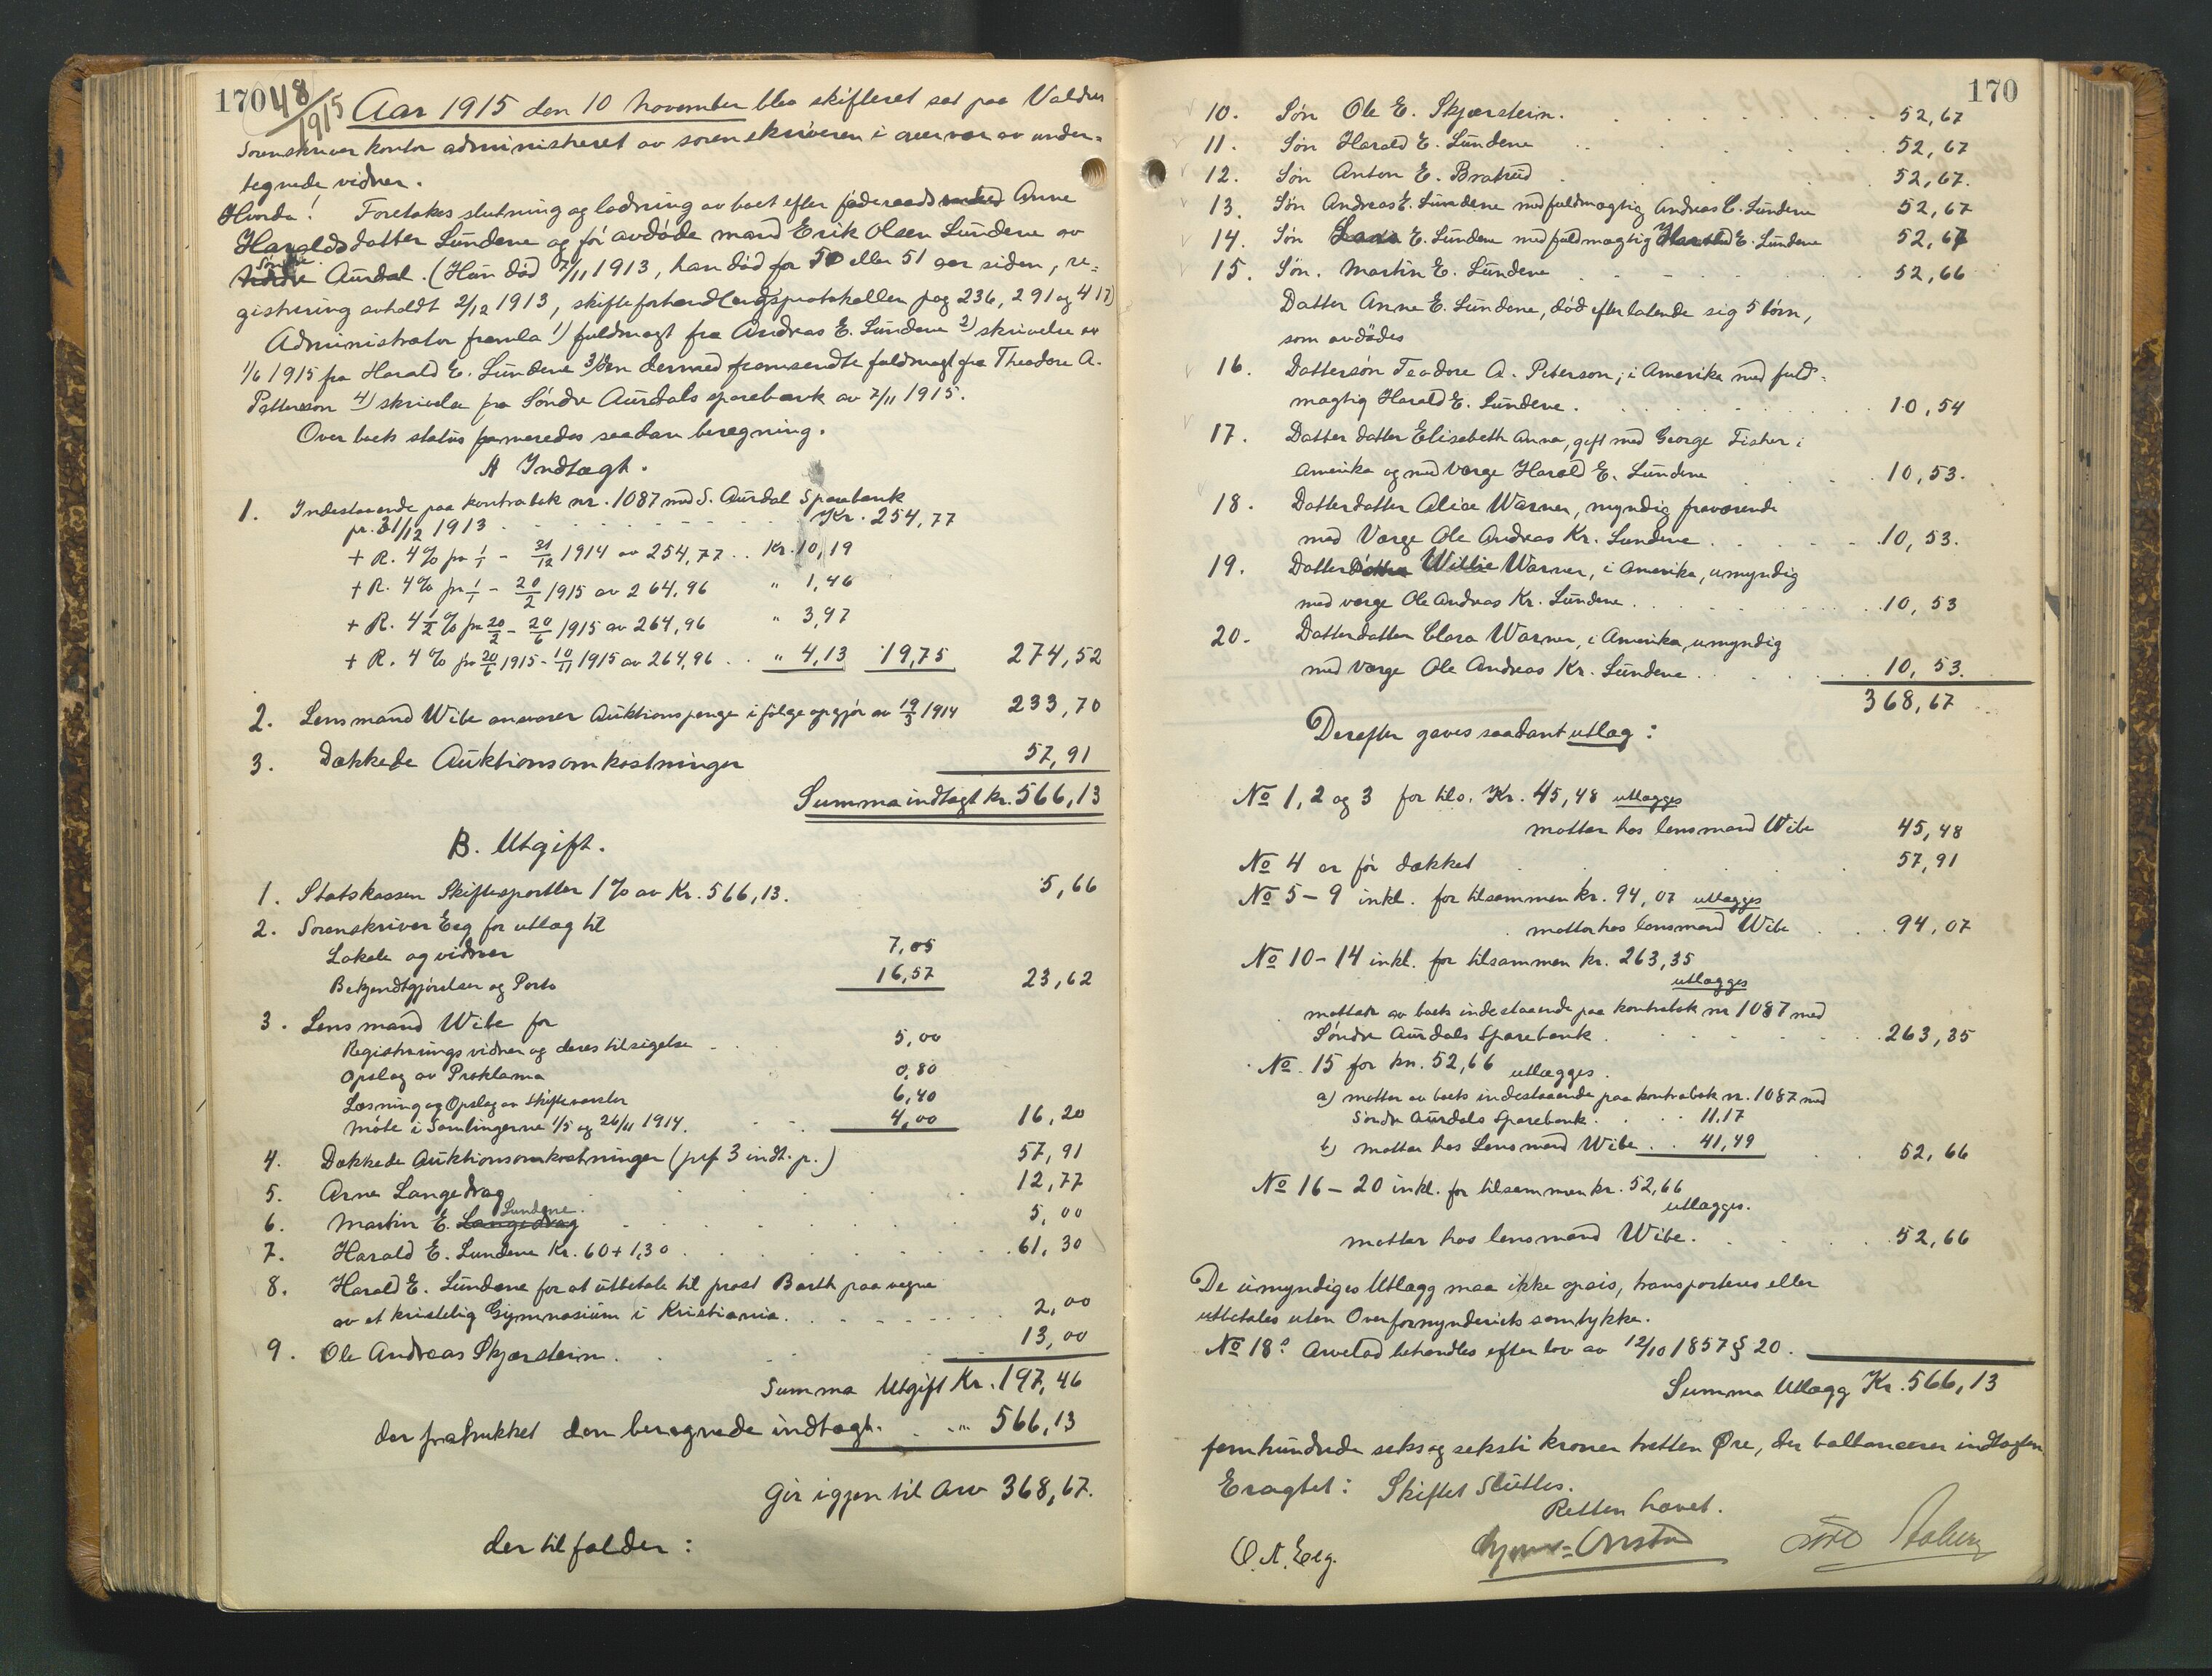 170
48/1915
Aar 1915 den 10 November blev skifteret sat paa Valdres
Sorenskriverkontor administreret av sorenskriveren i overvær av under-
tegnede vidner.
Hvorda! Foretokes slutning og lodning av boet efter føderaads Anne
Haraldsdatter Lundene og før avdøde mand Erik Olsen Lundene av
Søndre Aurdal. (Hun død 7/11 1913, han død for 50 eller 51 aar siden, re-
gistrering avholdt 2/12 1913, skifteforhandlingsprotokollen pag 236, 291 og 417)
Administrator fremla 1) fuldmagt fra Andreas E. Lundene 2) skrivelse av
1/6 1915 fra Harald E. Lundene 3) den dermed fremsendte fuldmagt fra Theodore A.
Petterson 4) skrivelse fra Søndre Aurdals sparebank av 7/11 1915.
Over boets status formeredes saadan beregning.
A Indtægt.
1. Indestaaende paa kontrabok nr. 1087 med S. Aurdal Sparebank
pr. 31/12 1913 Kr. 254,77
+ R. 4% fra 1/1 - 31/12 1914 av 254,77 .. Kr. 10,19
+ R. 4% fra 1/1 - 20/2 1915 av 264,96 " 1,46
+ R. 4 1/2 % fra 20/2 - 20/6 1915 av 264,96 " 3,97
+ R. 4 % fra 20/6 1915 - 10/11 1915 av 264,96 .. " 4,13 19,75 274,52
2. Lensmand Wibe ansvarer Auktionspenge i følge opgjør av 19/3 1914 233,70
3. Dækkede Auktionsomkostninger 57,91
Summa indtægt kr. 566,13
B. Utgift.
1. Statskassen Skiftesportler 1% av Kr. 566,13. 5,66
2. Sorenskriver Eeg for utlæg til
Lokale og vidner 7,05
Bekjendtgjørelser og Porto 16,57 23,62
3. Lensmand Wibe for
Registreringsvidner og deres tilsigelse 5,00
Opslag av Proklama 0,80
Læsning og Opslag av Skiftevarsler 6,40
Møte i Samlingerne 1/5 og 26/11 1914. 4,00 16,20
4. Dækkede Auktionsomkostninger (jvf 3 indt. p.) 57,91
5. Arne Langedrag 12,77
6. Martin E. Langedrag Lundene. 5,00
7. Harald E. Lundene Kr. 60 + 1,30 61,30
8. Harald E. Lundene for at utbetale til prost Barth paa vegne
av et kristelig Gymnasium i Kristiania. 2,00
9. Ole Andreas Skjærstein. 13,00
Summa Utgift Kr. 197,46
der fratrukket den beregnede indtægt. " 566,13
Gir igjen til Arv 368,67.
der tilfalder:
170
10. Søn Ole E. Skjærstein. 52,67
11. Søn Harald E. Lundene 52,67
12. Søn Anton E. Bratrud 52,67.
13. Søn Andreas E. Lundene med fuldmægtig Andreas C. Lundene 52,67
14. Søn E. Lundene med fuldmægtig Harald E. Lundene 52,67
15. Søn. Martin E. Lundene 52,66
Datter Anne E. Lundene, død efterlatende sig 5 børn,
som avdødes
16. Dattersøn Teodore A. Peterson, i Amerika med fuld-
mægtig Harald E. Lundene. 10,54
17. Datterdatter Elisabeth Anna, gift med George Fisher i
Amerika og med Værge Harald E. Lundene 10,53.
18. Datterdatter Alice Warner, myndig fraværende
med Værge Ole Andreas Kr. Lundene 10,53.
19. Datter Willie Warner, i Amerika, umyndig
med værge Ole Andreas Kr. Lundene. 10,53
20. Datterdatter Clara Warner, i Amerika, umyndig
med værge Ole Andreas Kr. Lundene. 10,53.
368,67
Derefter gaves saadant utlæg:
No 1, 2 og 3 for tils. Kr. 45,48 utlægges
mottar hos lensmand Wibe 45,48
No 4 er før dækket 57,91
No 5 - 9 inkl. for tilsammen kr. 94,07 utlægges
mottar hos lensmand Wibe 94,07
No 10 - 14 inkl. for tilsammen kr. 263,35
utlægges
mottar av boets indestaaende paa kontrabok nr 1087 med
Søndre Aurdals Sparebank. 263,35
No. 15 for kr. 52,66 utlægges.
a) mottar av boets indestaaende paa kontrabok nr. 1087 med
Søndre Aurdals Sparebank. 11,17
b) mottar hos Lensmand Wibe .. 41,49 52,66
No 16 - 20 inkl. for tilsammen kr. 52,66
utlægges.
mottar hos lensmand Wibe. 52,66
De umyndiges Utlægg maa ikke opsis, transporteres eller
utbetales uten Overformynderiets samtykke.
No 18s Arvelod behandles efter lov av 12/10 1857 § 20.
Summa Utlægg Kr. 566,13
femhundrede seks og seksti kroner tretten Øre, der ballancerer indtægten
Eragtet: Skiftet Sluttes.
Retten hævet.
O. A. Eeg.